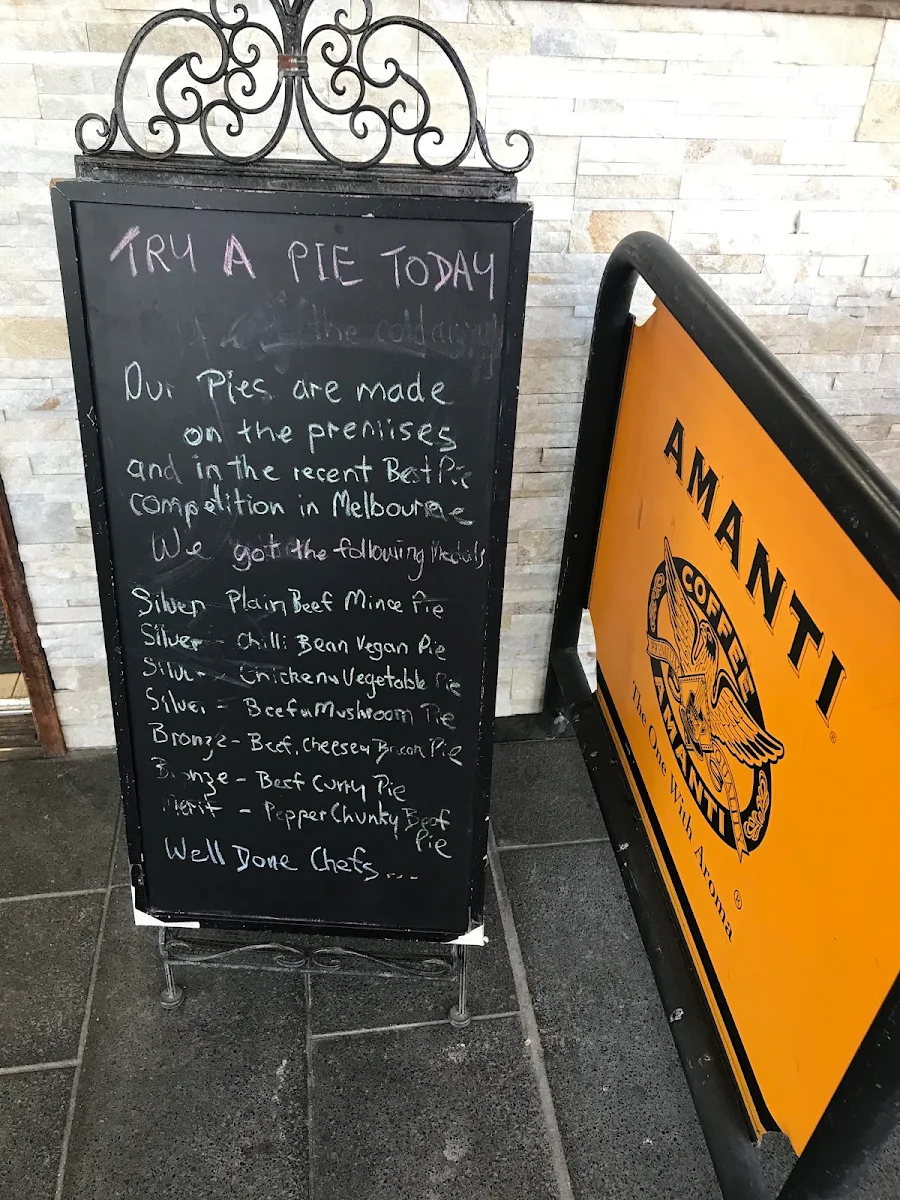 TRY A PIE TODAY
the cold away
Our Pies are made
on the premises
and in the recent Best Pie
competition in Melbourne
We got the following Medals
Silver Plain Beef Mince Pie
Silver - Chilli Bean Vegan Pie
Silver - Chicken & Vegetable Pie
Silver - Beef & Mushroom Pie
Bronze - Beef, Cheese & Bacon Pie
Bronze - Beef Curry Pie
Merit - Pepper Chunky Beef
Pie
Well Done Chefs...
AMANTI ®
COFFEE
AMANTI
The One With Aroma ®